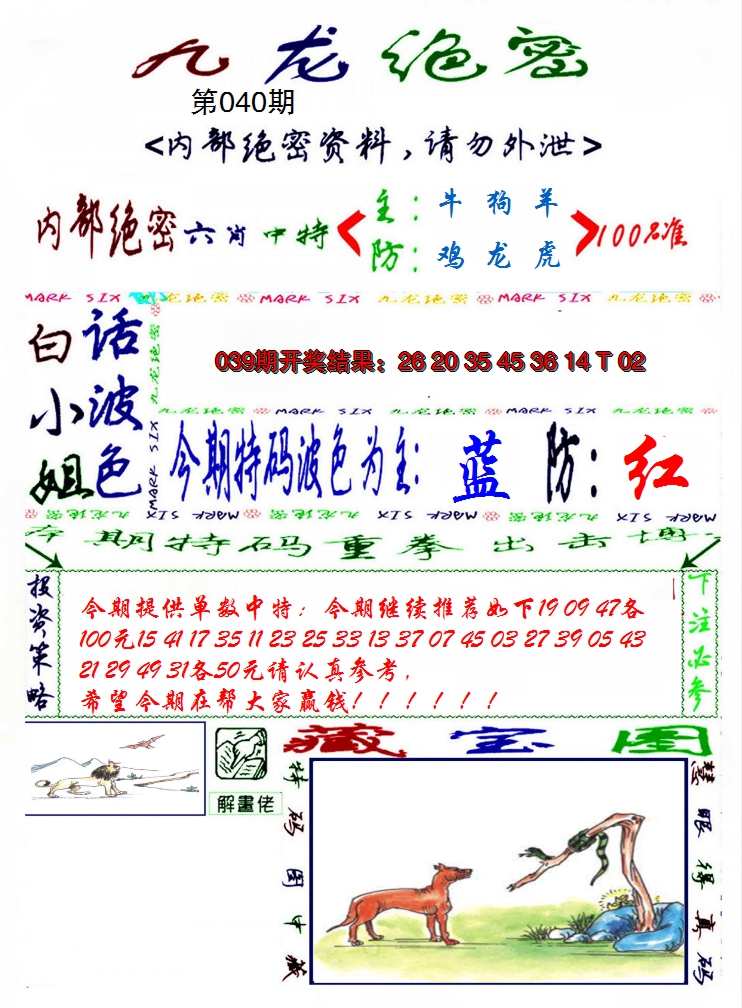 九龙绝密
第040期
<内部绝密资料,请勿外泄>
内部绝密六肖中特
主:牛 狗 羊
防:鸡 龙 虎
100%准
MARK SIX 九龙绝密 MARK SIX 九龙绝密 MARK SIX 九龙绝密
白小姐
话波色
九龙绝密 MARK SIX
039期开奖结果:26 20 35 45 36 14 T 02
九龙绝密 MARK SIX 九龙绝密 MARK SIX 九龙绝密
今期特码波色为主:蓝 防:红
MARK SIX 九龙绝密 MARK SIX 九龙绝密 MARK SIX 九龙绝密
本期特码重拳出击博
投资策略
今期提供单数中特:今期继续推荐如下19 09 47各
100元15 41 17 35 11 23 25 33 13 37 07 45 03 27 39 05 43
21 29 49 31各50元请认真参考,
希望今期在帮大家赢钱!!!!!!
下注必参
解畫佬
藏宝图
特码图中藏
慧眼得真码